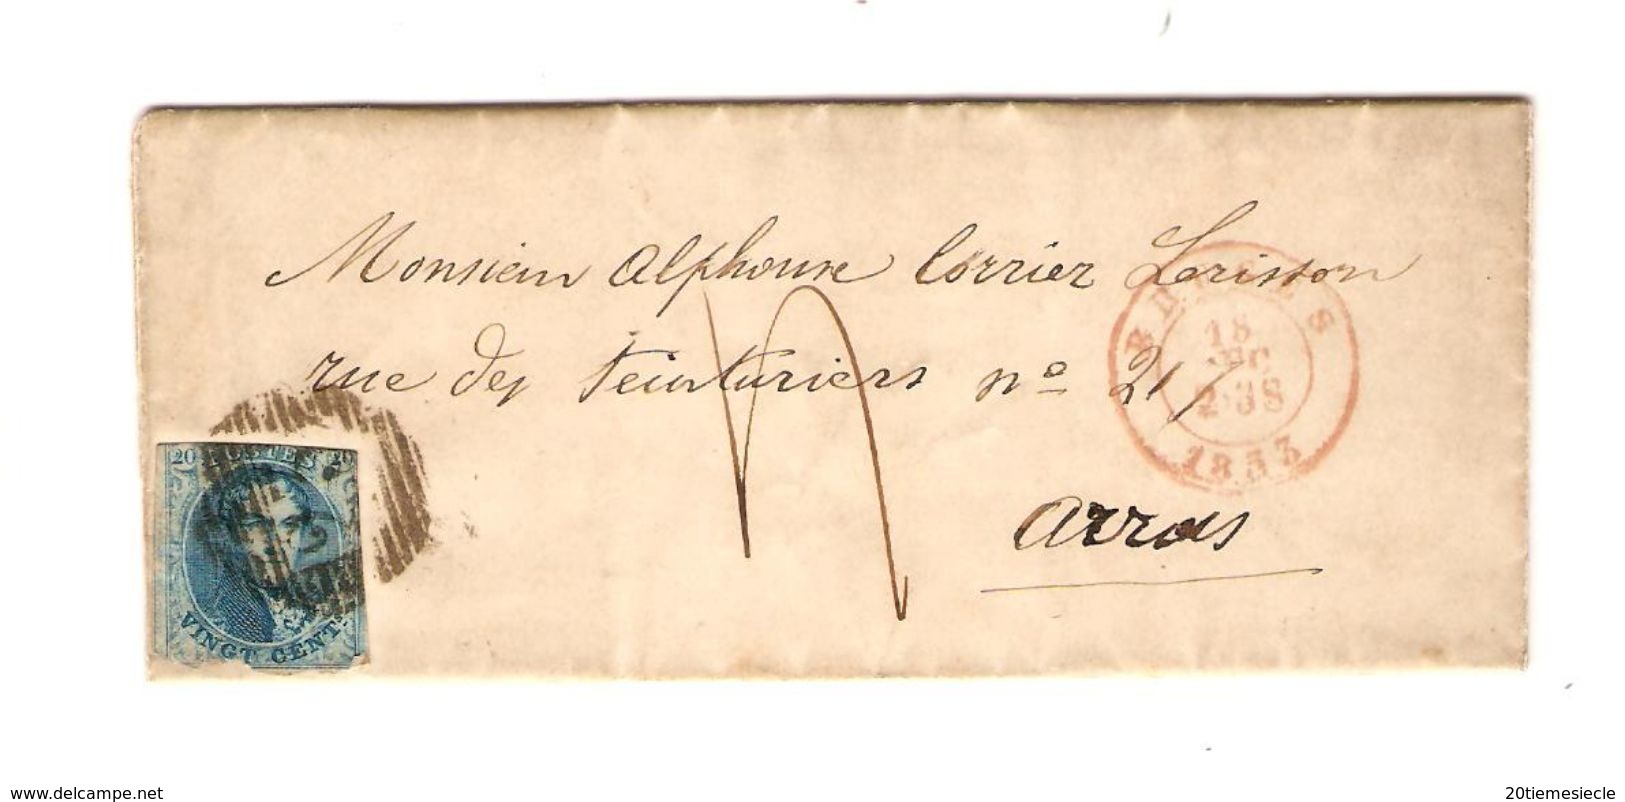 Monsieur Alphonse Corriez Lerisson
rue des Teinturiers nº 217
Arras
4
BRUXELLES
18
DEC
1853
20 POSTES 20
VINGT CENTS.
www.delcampe.net
20tiemesiecle